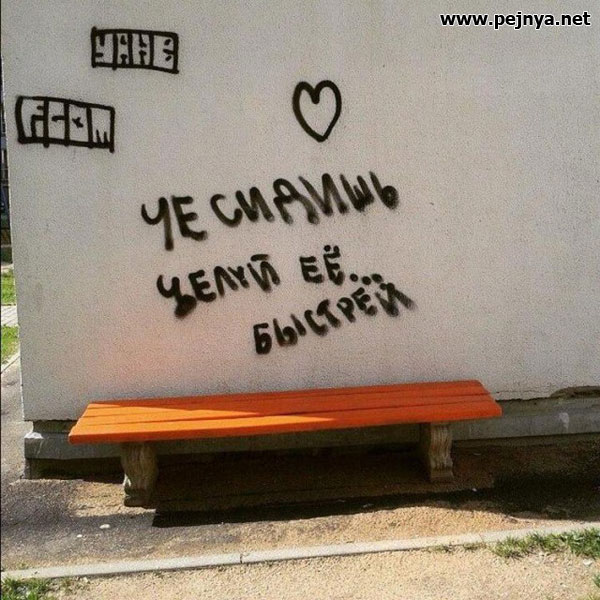 www.pejnya.net
ЧЕ СИДИШЬ
ЦЕЛУЙ ЕЁ...
БЫСТРЕЙ